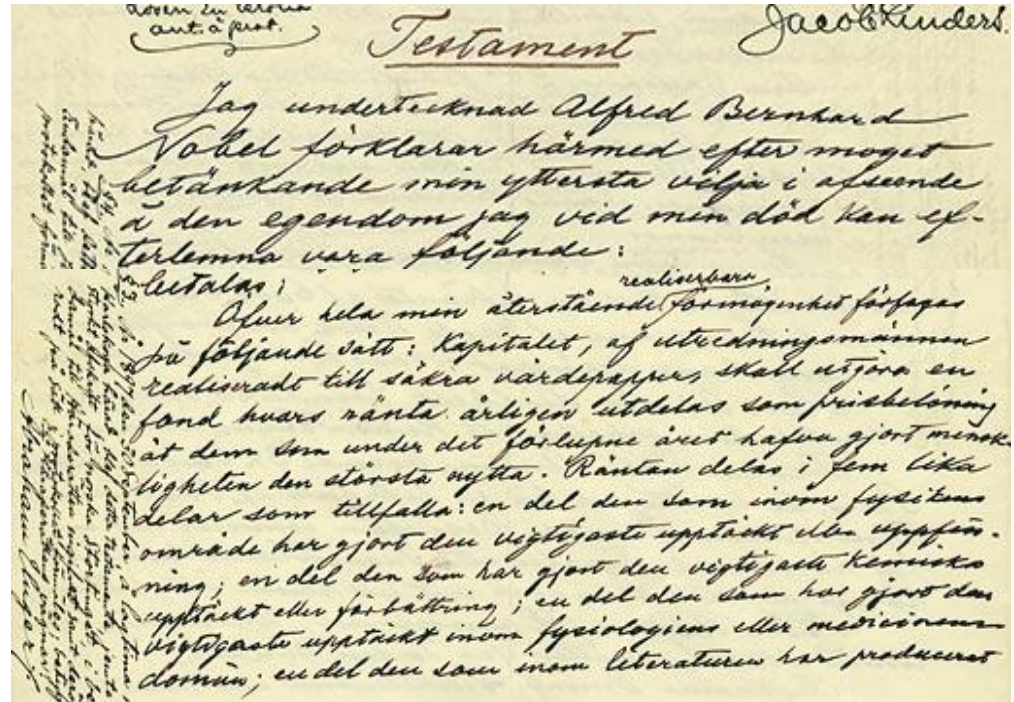 ant. à prot.
Jacob Linders.
Testament
Jag undertecknad Alfred Bernhard
Nobel förklarar härmed efter moget
betänkande min yttersta vilja i afseende
å den egendom jag vid min död kan ef-
terlemna vara följande:
betalas;
realiserbara
Öfver hela min återstående förmögenhet förfogas
på följande sätt: Kapitalet, af utredningsmännen
realiseradt till säkra värdepapper, skall utgöra en
fond hvars ränta årligen utdelas som prisbelöning
åt dem som under det förlupne året hafva gjort mensk-
ligheten den största nytta. Räntan delas i fem lika
delar som tillfalla: en del den som inom fysikens
område har gjort den vigtigaste upptäckt eller uppfin-
ning; en del den som har gjort den vigtigaste kemiska
upptäckt eller förbättring; en del den som har gjort den
vigtigaste upptäckt inom fysiologiens eller medicinens
domän; en del den som inom literaturen har producerat